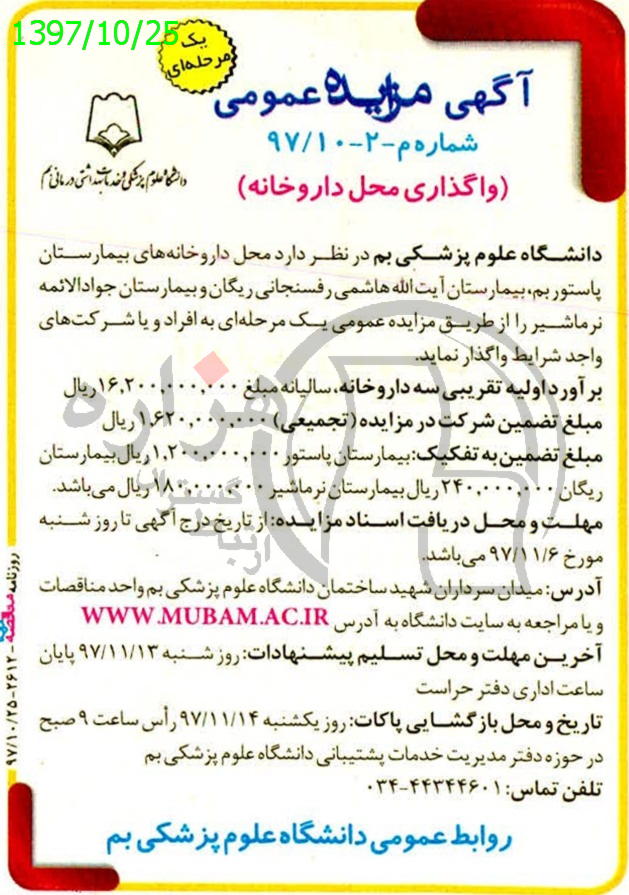 1397/10/25
یک
مرحله‌ای
آگهی مزایده عمومی
شماره م-۲-۹۷/۱۰
(واگذاری محل داروخانه)
دانشگاه علوم پزشکی و خدمات بهداشتی درمانی بم
دانشگاه علوم پزشکی بم در نظر دارد محل داروخانه‌های بیمارستان
پاستور بم، بیمارستان آیت الله هاشمی رفسنجانی ریگان و بیمارستان جوادالائمه
نرماشیر را از طریق مزایده عمومی یک مرحله‌ای به افراد و یا شرکت‌های
واجد شرایط واگذار نماید.
برآورد اولیه تقریبی سه داروخانه، سالیانه مبلغ ۱۶,۲۰۰,۰۰۰,۰۰۰ ریال
مبلغ تضمین شرکت در مزایده (تجمیعی) ۱,۶۲۰,۰۰۰,۰۰۰ ریال
مبلغ تضمین به تفکیک: بیمارستان پاستور ۱,۲۰۰,۰۰۰,۰۰۰ ریال بیمارستان
ریگان ۲۴۰,۰۰۰,۰۰۰ ریال بیمارستان نرماشیر ۱۸۰,۰۰۰,۰۰۰ ریال می‌باشد.
مهلت و محل دریافت اسناد مزایده: از تاریخ درج آگهی تا روز شنبه
مورخ ۹۷/۱۱/۶ می‌باشد.
آدرس: میدان سرداران شهید ساختمان دانشگاه علوم پزشکی بم واحد مناقصات
و یا مراجعه به سایت دانشگاه به آدرس WWW.MUBAM.AC.IR
آخرین مهلت و محل تسلیم پیشنهادات: روز شنبه ۹۷/۱۱/۱۳ پایان
ساعت اداری دفتر حراست
تاریخ و محل بازگشایی پاکات: روز یکشنبه ۹۷/۱۱/۱۴ رأس ساعت ۹ صبح
در حوزه دفتر مدیریت خدمات پشتیبانی دانشگاه علوم پزشکی بم
تلفن تماس: ۰۳۴-۴۴۳۴۴۶۰۱
روابط عمومی دانشگاه علوم پزشکی بم
روزنامه مناقصه - ۲۶۱۲-۹۷/۱۰/۲۵
هزاره